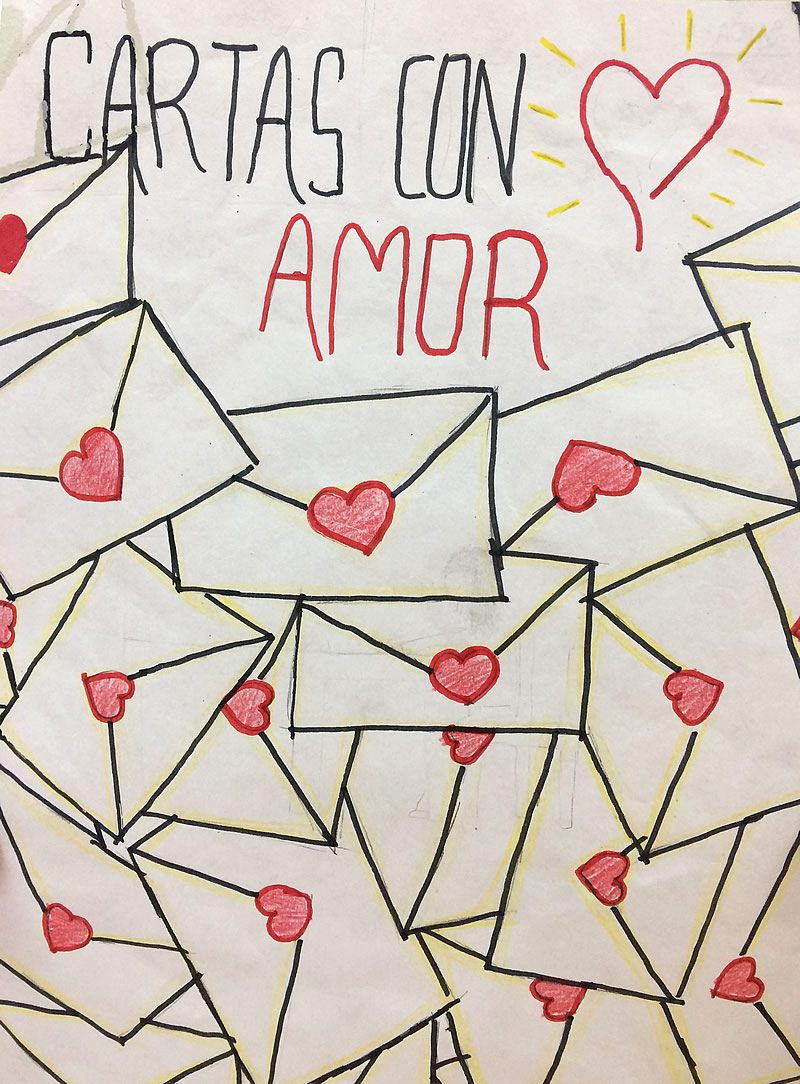 CARTAS CON
AMOR